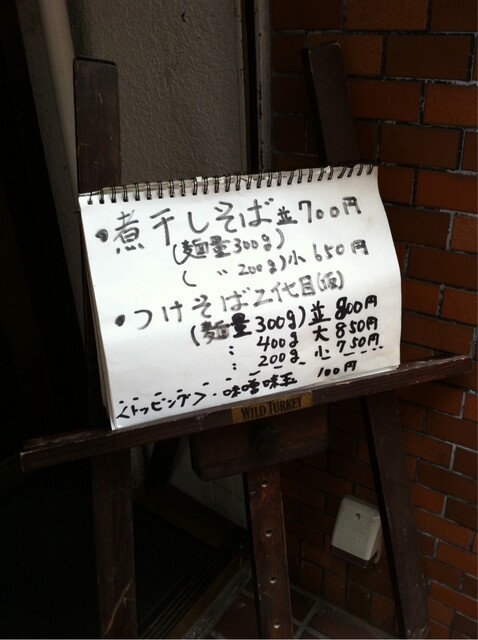 ・煮干しそば並700円
(麺量300g)
(〃200g)小650円
・つけそば二代目(仮)
(麺量300g)並800円
: 400g 大850円
: 200g 小750円
<トッピング>・味噌味玉 100円
WILD TURKEY